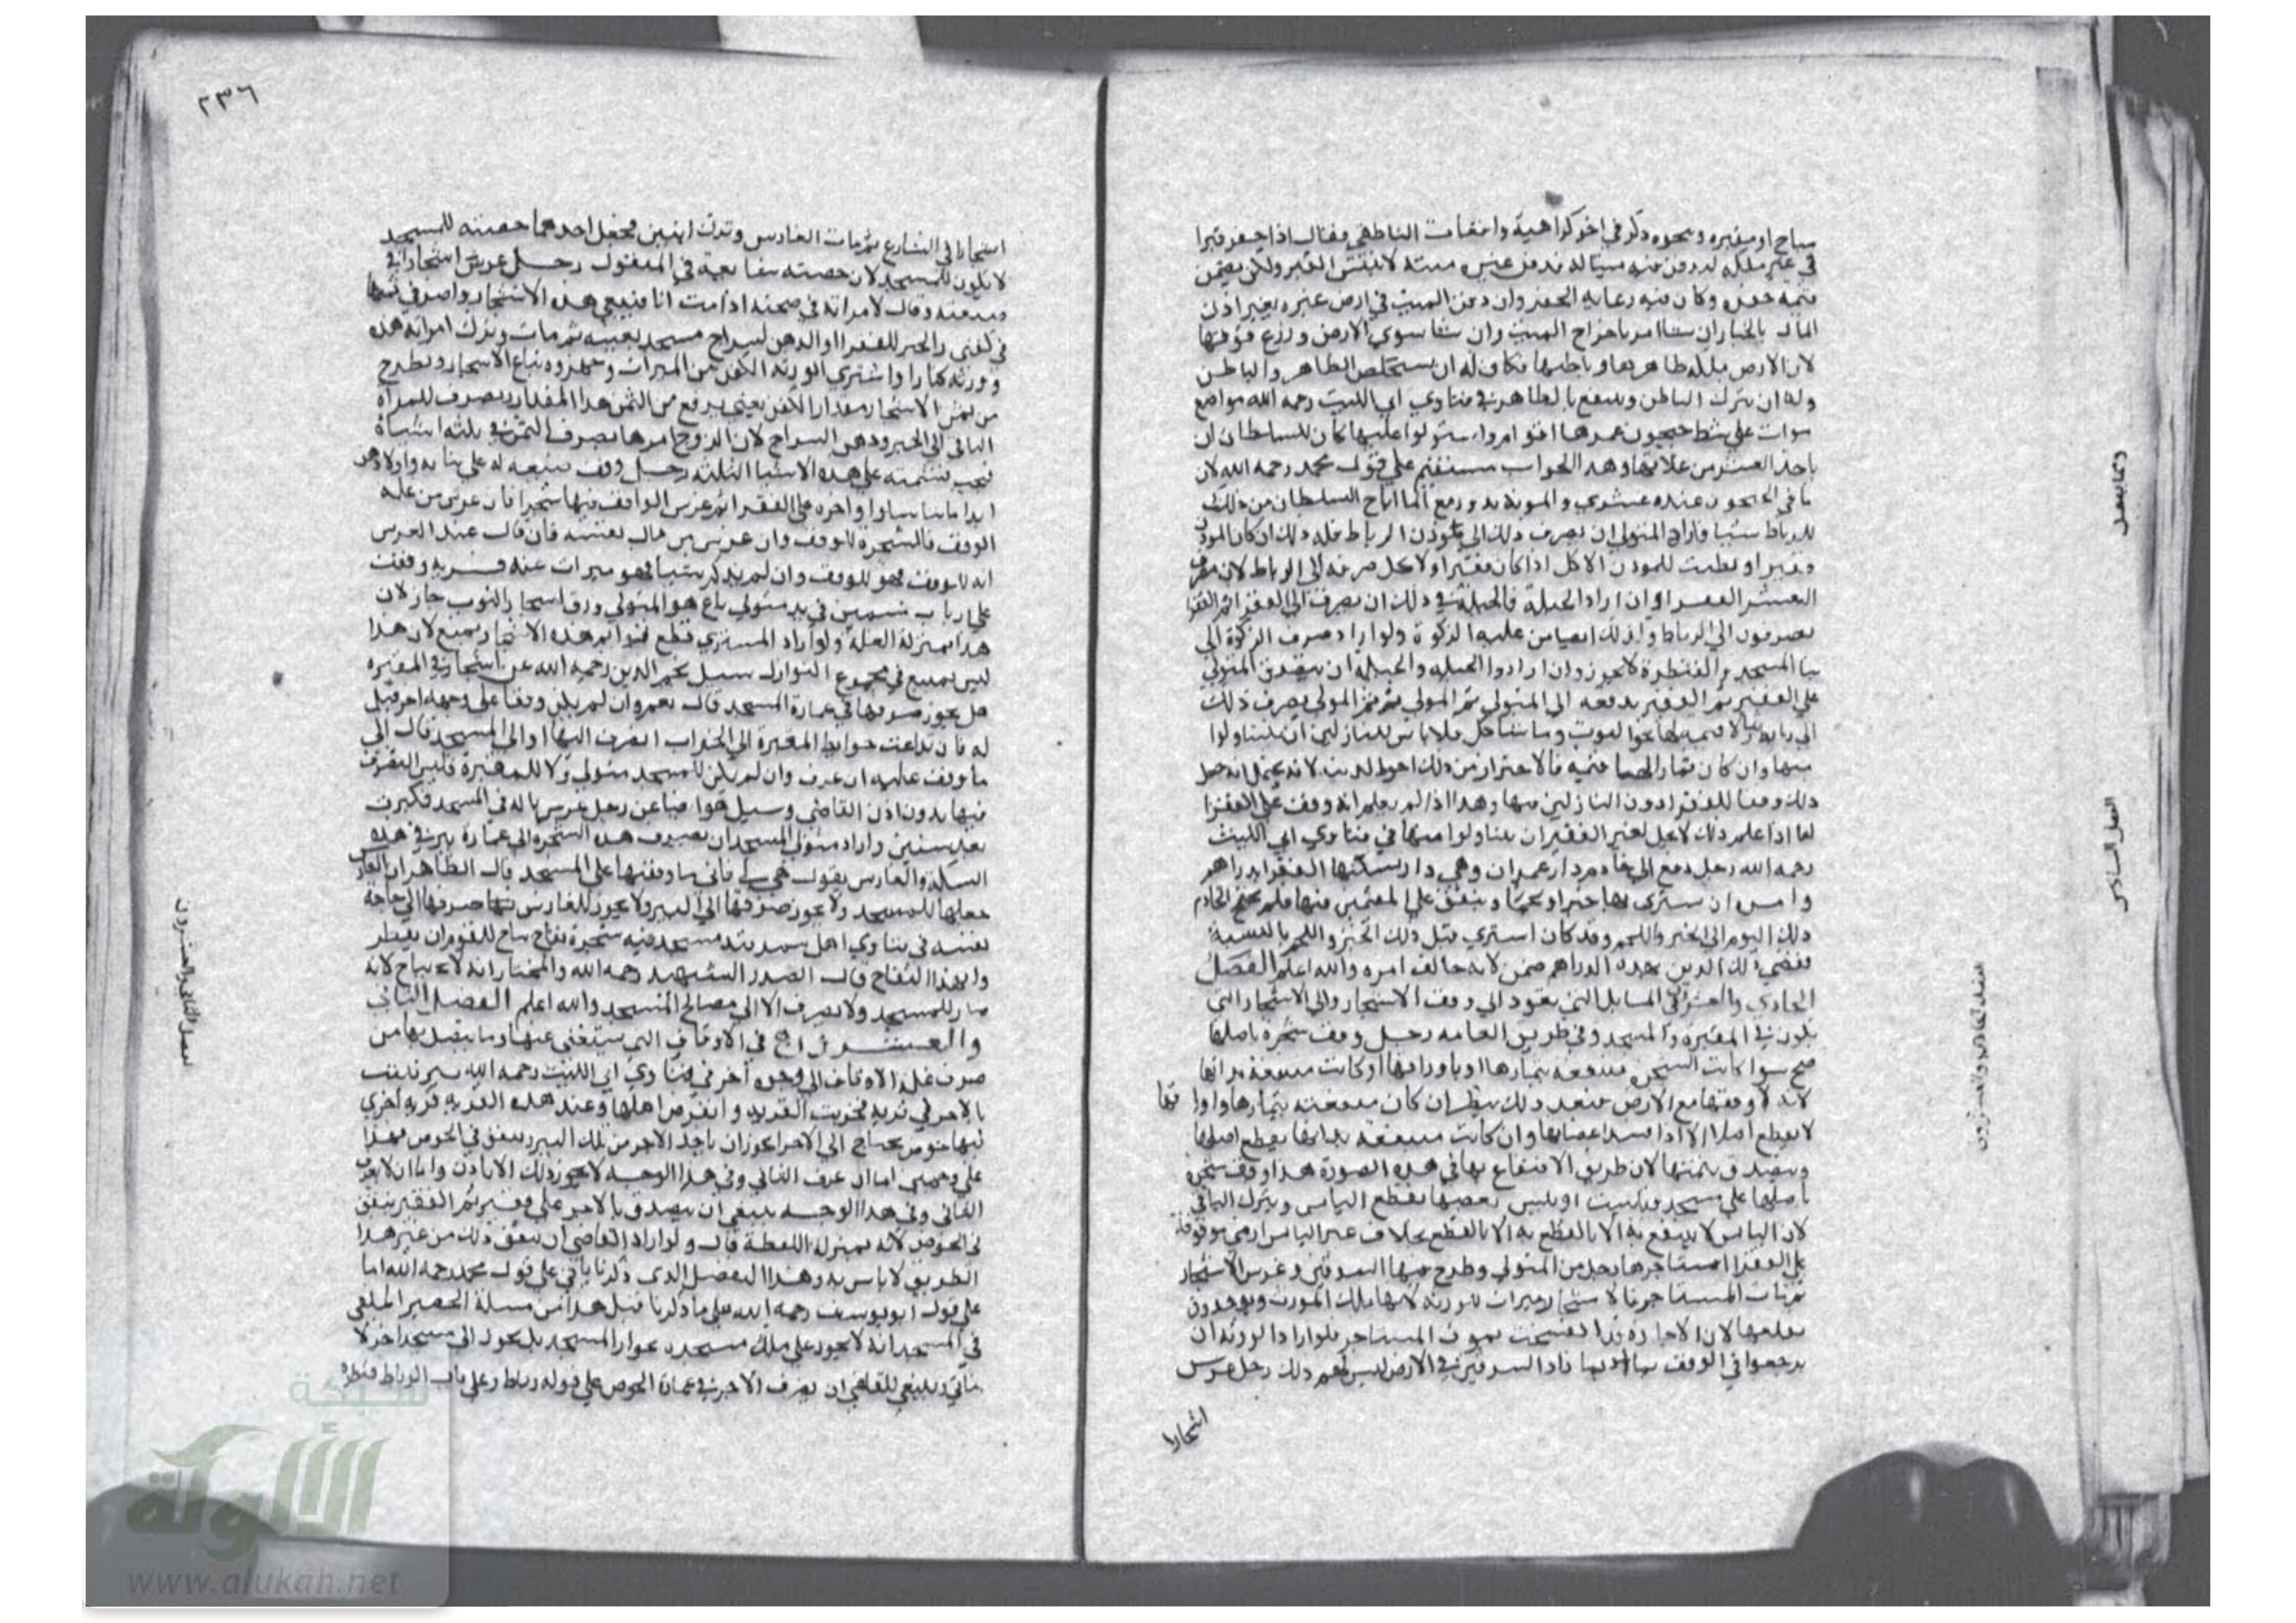 مباح او مقبرة ونحوه ذكر في اخر كراهية واقعات الناطفي وقال اذا حفر قبرا
في غير ملكه ليدفن فيه ميتا له فدفن غيره ميته لا ينبش القبر ولكن يضمن
قيمة حفره وكان فيه رعاية الحقين وان دفن الميت في ارض غيره بغير اذن
المالك بالخيار ان شا امر باخراج الميت وان شا سوي الارض وزرع فوقها
لان الارض ملكه ظاهرها وباطنها فكان له ان يستخلص الظاهر والباطن
وله ان يترك الباطن وينتفع بالظاهر في فتاوي ابي الليث رحمه الله مواضع
موات على شط جيحون عمرها اقوام واستولوا عليها كان للسلطان ان
ياخذ العشر من غلاتها وهذا الجواب مستقيم على قول محمد رحمه الله لان
ما في الجيحون عنده عشري والمونة تدور مع الما اباح السلطان من ذلك
للرباط شيا فاراد المتولي ان يصرف ذلك الى موذن الرباط فله ذلك ان كان الموذن
فقيرا ويطيب للموذن الاكل اذا كان فقيرا ولا يحل صرفه الى الرباط لان مصرف
العشر الفقرا وان اراد الحيلة فالحيلة في ذلك ان يصرف الى الفقرا ثم الفقرا
يصرفون الى الرباط وكذلك ايضا من عليه الزكوة ولو اراد صرف الزكوة الى
بنا المسجد والقنطرة لا يجوز وان ارادوا الحيلة والحيلة ان يتصدق المتولي
على الفقير ثم الفقير يدفعه الى المتولي ثم المتولي يصرف ذلك
الى رباط
منها وان كان ثمارا لها قيمة فالاحتراز من ذلك احوط لدينه لانه يحتمل انه جعل
ذلك وقفا للفقرا دون النازلين فيها وهذا اذا لم يعلم انه وقف على الفقرا
اما اذا علم ذلك لا يحل لغير الفقير ان يتناولوا منها في فتاوي ابي الليث
رحمه الله رجل دفع الى خادم دار عمران وهي دار يسكنها الفقرا دراهم
وامره ان يشتري بها خبزا ولحما وينفق على المقيمين فيها فلم يحتج الخادم
ذلك اليوم الى الخبز واللحم وقد كان اشتري قبل ذلك الخبز واللحم بالنسية
فقضي ذلك الدين بهذه الدراهم ضمن لانه خالف امره والله اعلم الفصل
الحادي والعشرون في المسايل التي يعود الى وقف الاشجار والى الاشجار التي
تكون في المقبرة والمسجد وفي طريق العامة رجل وقف شجرة باصلها
صح سوا كانت الشجرة منتفعة بثمارها او باوراقها او كانت منتفعة بذاتها
لانه لو وقفها مع الارض فبعد ذلك ينظر ان كان منتفعة بثمارها واوراقها
لا يقطع اصلا الا اذا فسد اغصانها وان كانت منتفعة بذاتها يقطع اصلها
ويتصدق بثمنها لان طريق الانتفاع بها في هذه الصورة هذا وقف شجرة
باصلها على مسجد فيبست او يبس بعضها يقطع اليابس ويترك الباقي
لان اليابس لا ينتفع به الا بالقطع به الا بالقطع بخلاف غير اليابس ارض موقوفة
على الفقرا استاجرها رجل من المتولي وطرح فيها السرقين وغرس الاشجار
ثم مات المستاجر فالاشجار ميراث لورثته لانها ملك المورث ويوخذون
بقلعها لان الاجارة قد انفسخت بموت المستاجر فلو اراد الورثة ان
يرجعوا في الوقف بما زاد السرقين في الارض ليس لهم ذلك رجل غرس
اشجارا
٢٣٦
اشجارا في الشارع ثم مات الغارس وترك ابنين فجعل احدهما حصته للمسجد
لا يكون للمسجد لان حصته شايعة في المنقول رجل غرس اشجارا في
ضيعته وقال لامراته في صحته اذا مت انا فبيعي هذه الاشجار واصرفي ثمنها
في كفني والخبز للفقرا والدهن لسراج مسجد بعينه ثم مات وترك امراته هذه
وورثة كبارا واشتري الورثة الكفن من الميراث وجهزوه يباع الاشجار ويطرح
من ثمن الاشجار مقدار الكفن يعني يرفع من الثمن هذا المقدار ويصرف للمراة
الباقي الى الخبز ودهن السراج لان الزوج امرها بصرف الثمن في ثلثة اشيا
فيجب قسمته على هذه الاشيا الثلثة رجل وقف ضيعة له على بناته واولادهن
ابدا ما تناسلوا واخره على الفقرا ثم غرس الواقف فيها شجرا فان غرس من غلة
الوقف فالشجرة للوقف وان غرس من مال نفسه فان قال عند الغرس
انه للوقف فهو للوقف وان لم يذكر شيا فهو ميراث عنه قرية وقفت
على ارباب مسمين في يد متولي باع هو المتولي ورق اشجار التوت جاز لان
هذا بمنزلة الغلة ولو اراد المشتري قطع قوايم هذه الاشجار يمنع لان هذا
ليس بمبيع في مجموع النوازل سيل نجم الدين رحمه الله عن اشجار في المقبرة
هل يجوز صرفها في عمارة المسجد قال نعم وان لم يكن وقفا على وجه اخر قيل
له فان تداعت حوايط المقبرة الى الخراب ايصرف اليها او الى المسجد قال الى
ما وقفت عليه ان عرف وان لم يكن للمسجد متولي ولا للمقبرة فليس التصرف
فيها بدون اذن القاضي وسيل هو ايضا عن رجل غرس تالة في المسجد فكبرت
بعد سنين واراد متولي المسجد ان يصرف هذه الشجرة الى عمارة بير في هذه
السكة والغارس يقول هي لي فاني ما وقفتها على المسجد قال الظاهر ان الغارس
جعلها للمسجد ولا يجوز صرفها الى البير ولا يجوز للغارس صرفها الى حاجة
نفسه في فتاوي اهل سمرقند مسجد فيه شجرة تفاح يباح للقوم ان يفطر
وا بهذا التفاح قال الصدر الشهيد رحمه الله والمختار انه لا يباح لانه
صار للمسجد ولا يصرف الا الى مصالح المسجد والله اعلم الفصل الثاني
والعشرون في الاوقاف التي يستغني عنها وما يتصل بها من
صرف غلة الاوقاف الى وجوه اخر في فتاوي ابي الليث رحمه الله بير بنيت
بالاجر في قرية فخربت القرية وانقرض اهلها وعند هذه القرية قرية اخري
فيها حوض يحتاج الى الاجر ايجوز ان ياخذ الاجر من تلك البير وينفق في الحوض فهذا
على وجهين اما ان عرف الباني وفي هذا الوجه لا يجوز ذلك الا باذنه واما ان لا يعرف
الباني وفي هذا الوجه ينبغي ان يتصدق بالاجر على فقير ثم الفقير ينفق
في الحوض لانه بمنزلة اللقطة قال ولو اراد القاضي ان ينفق ذلك من غير هذا
الطريق لا باس به وهذا التفصيل الذي ذكرنا ياتي على قول محمد رحمه الله اما
على قول ابو يوسف رحمه الله على ما ذكرنا قبل هذا من مسلة الحصير الملقي
في المسجد انه لا يعود على ملك متخذه بجوار المسجد بل يحول الى مسجد اخر لا
ياتي وينبغي للقاضي ان يصرف الاجر في عمارة الحوض على قوله رباط وعلى باب الرباط قنطرة
الفصل الحادي والعشرون
الفصل الثاني والعشرون
شبكة
الألوكة
www.alukah.net